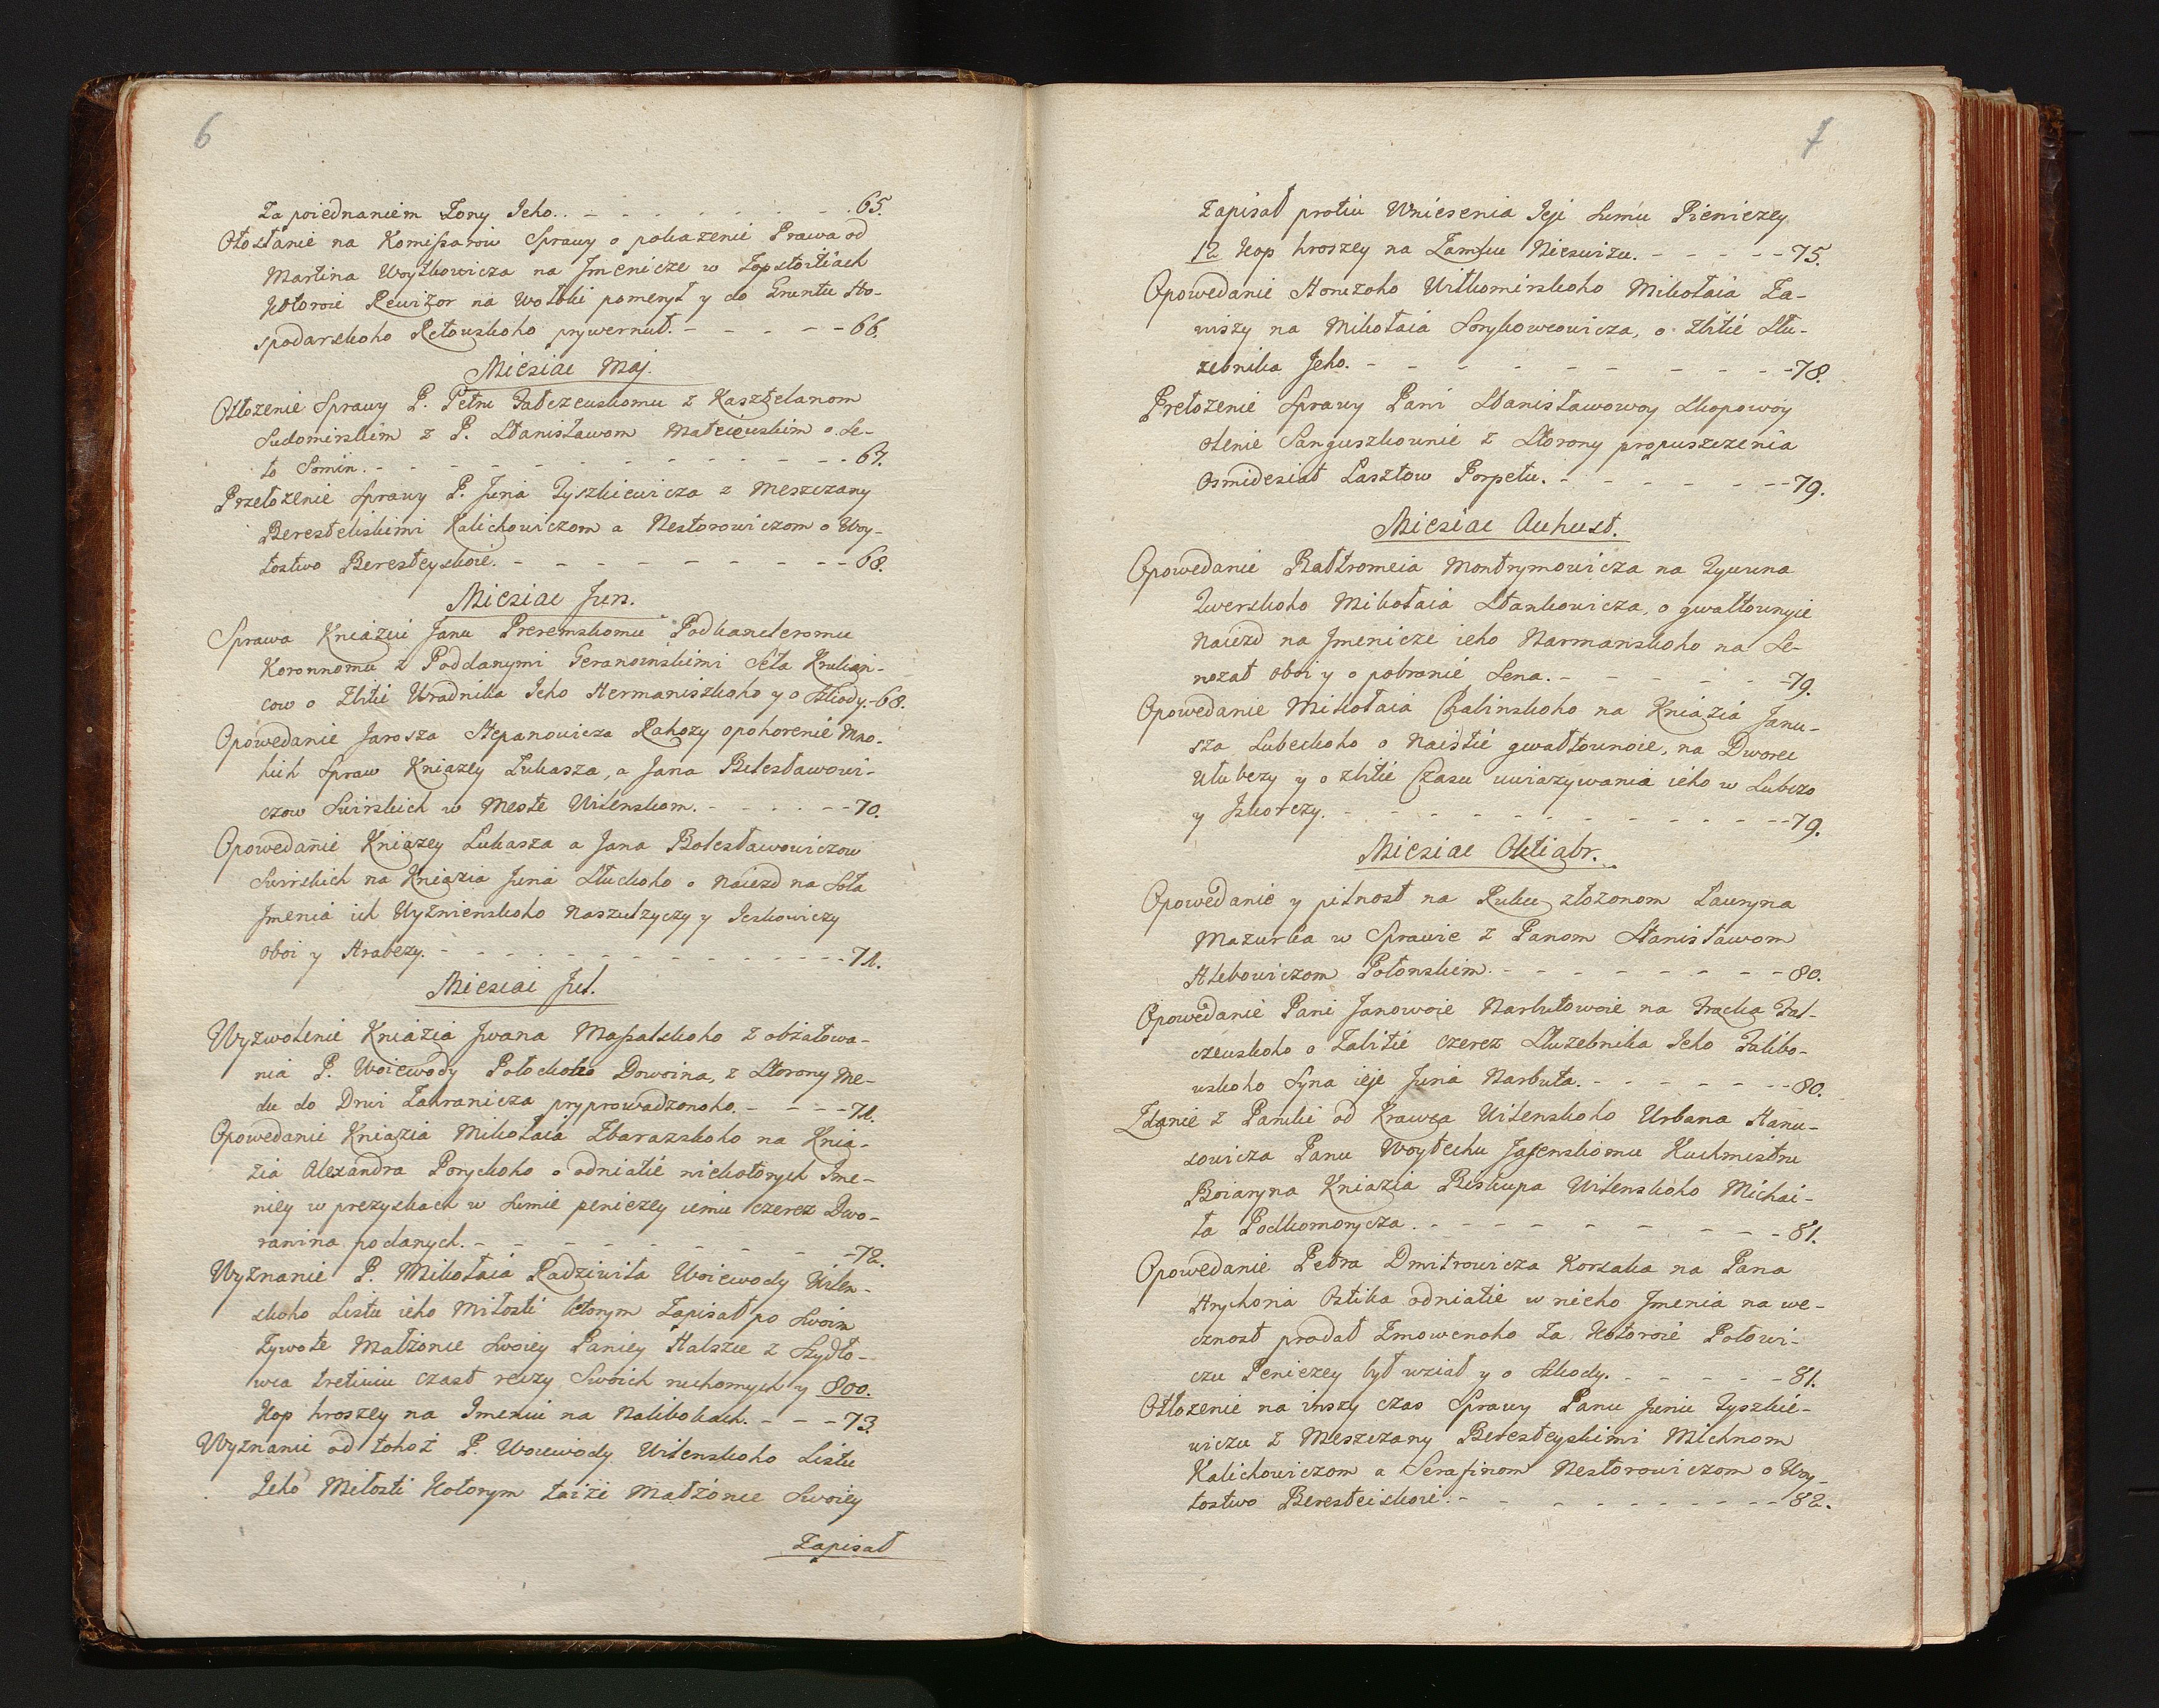 6
Za poiednaniem Zony Jeho. . - - - - - - - .65.
Otosłanie na Komißarow Sprawy o pokazenie Prawa od
Martina Woytkowicza na Jmenicze w Zopstoitiach
Kotoroie Rewizor na Wołoki pomerył y do Gruntu Ho-
spodarskoho Retowskoho prywernuł. - - - - - 66.
Miesiac Maj.
Otłozenie Sprawy P. Petru Fałczewskomu z Kasztelanom
Sudomirskim z P. Stanisławom Mateiewskim o Se-
ło Somin. - - - - - - - - - - - 67.
Przełozenie Sprawy P. Juria Tyszkiewicza z Meszczany
Beresteiskimi Kalichowiczom a Nestorowiczom o Woy-
tostwo Beresteyskoie. - - - - - - - - - 68.
Miesiac Jun.
Sprawa Kniaziu Janu Preremskomu Podkancleromu
Koronnomu z Poddanymi Geranoinskimi Seła Krukian-
cow o Zbitie Uradnika Jeho Hermaniszkoho y o szkody.-68.
Opowedanie Jarosza Stepanowicza Rahozy opohorenie Mno-
hich Spraw Kniazey Łukasza, a Jana Bolesławowi-
czow Swirskich w Meste Wilenskom. - - - - - 70.
Opowedanie Kniazey Lukasza a Jana Bolesławowiczow
Swirskich na Kniazia Juria Słuckoho o Naiezd na Seła
Jmenia ich Uyznienskoho Naszulzyczy y Jeskowiczy
oboi y Hrabezy. - - - - - - - - - - - 71.
Miesiac Jul.
Wyzwolenie Kniazia Jwana Maßalskoho z obzałowa-
nia P. Woiewody Połockoho Dowoina, z Storony Me-
du do Drwi Zahranicza pryprowadzonoho. - - - 71.
Opowedanie Kniazia Mikołaia Zbarazskoho na Knia-
zia Alexandra Poryckoho o odniatie niekotorych Jme-
niey w prezyskach w Sumie peniezey iemu czerez Dwo-
ranina podanych. - - - - - - - - - 72.
Wyznanie P. Mikołaia Radziwiła Woiewody Wilen-
skoho Listu ieho Miłosti ktorym Zapisał po Swoim
Zywote Małżonce Swoiey Paniey Halszce z Szydło-
wca tretiuiu czast reczy Swoich ruchomych y 800.
Kop hroszey na Jmeniu na Nalibokach. - - - 73.
Wyznanie od tohoż P. Woiewody Wilenskoho Listu
Jeho Miłosti Kotorym taiże Małżonce Swoiey
Zapisał
7
Zapisał protiw Wniesenia Jeji Sumu Pieniezey
12 Kop hroszey na Zamku Nieswizu. - - - - - 75.
Opowedanie Honczoho Wiłkomirskoho Mikołaia Za-
wiszy na Mikołaia Sorykowcowicza, o Zbitie Słu-
zebnika Jeho. - - - - - - - - - - - 78.
Prełozenie Sprawy Pani Stanisławowoy Skopowoy
Olenie Sanguszkownie z Storony propuszczenia
Osmidesiat Lasztow Porpelu. - - - - - - - 79.
Miesiac Auhust.
Opowedanie Bałtromeia Montrymowicza na Tywuna
Twerskoho Mikołaia Stankowicza, o gwałtownyie
Naiezd na Jmenicze ieho Narmanskoho na Se-
nozat oboi y o pobranie Sena. - - - - - - 79.
Opowedanie Mikołaia Chalinskoho na Kniazia Janu-
sza Lubeckoho o Naistie gwałtownoie, na Dworec
Hłubezy y o zbitie Czasu uwiazywania ieho w Lubczo
y Jskorczy. - - - - - - - - - - - 79.
Miesiac Oktiabr.
Opowedanie y pilnost na Roku złozonom Lauryna
Mazurka w Sprawie z Panom Stanisławom
Hlebowiczom Połonskim. - - - - - - - - 80.
Opowedanie Pani Janowoie Narbutowoie na Fracka Fal-
czewskoho o Zabitie czerez Słuzebnika Jeho Falibo-
wskoho Syna ieje Juria Narbuta. - - - - - - 80.
Zdanie z Panki od Krawca Wilenskoho Urbana Hanu-
sowicza Panu Woytechu Jasenskomu Kuchmistru
Boiaryna Kniazia Biskupa Wilenskoho Michai-
ła Podkomorycza . - - - - - - - - 81.
Opowedanie Petra Dmitrowicza Korsaka na Pana
Hryhoria Ostika odniatie w nieho Jmenia na we-
cznost prodał Zmowenoho Za Kotoroie Połowi-
cu Peniezey był wział y o Szkody. - - - - - 81.
Otłozenie na inszy czas Sprawy Panu Juriu Tyszkie-
wiczu z Meszczany Beresteyskimi Michnom
Kalichowiczom a Serafinom Nestorowiczom o Woy-
tostwo Beresteiskoie. - - - - - - - - - 82.